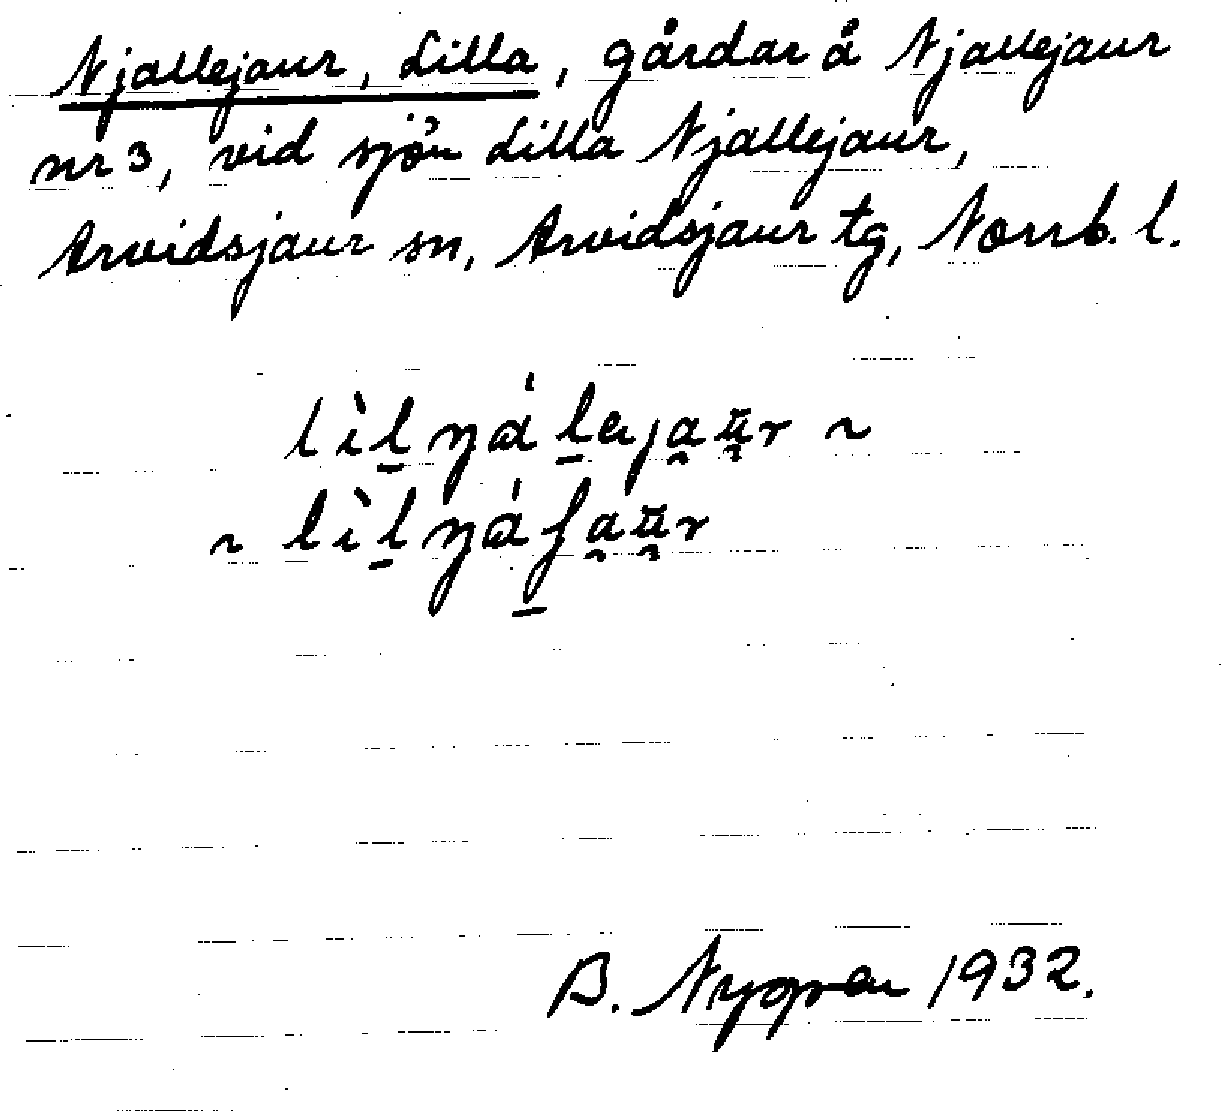 Njallejaur, Lilla, gårdar å Njallejaur
nr 3, vid sjön Lilla Njallejaur,
Arvidsjaur sn, Arvidsjaur tg, Norrb. l.
B. Nygren 1932.